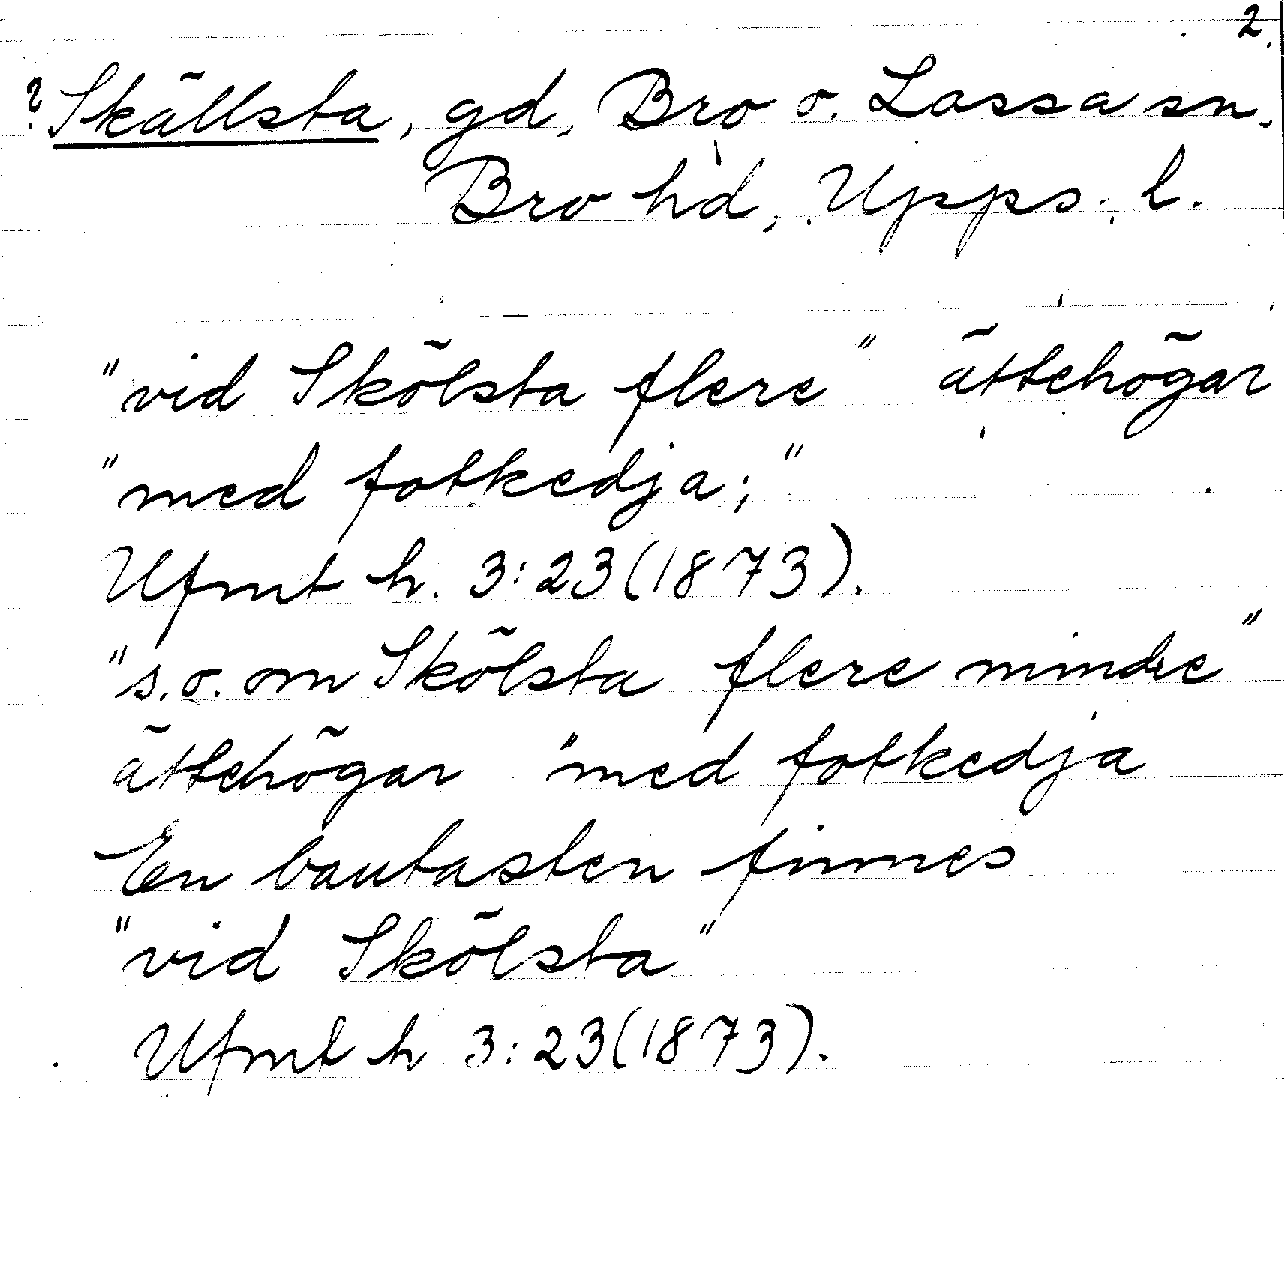 2.
? Skällsta, gd, Bro o. Lossa sn.
Bro hd, Upps. l.
"vid Skölsta flere" ättehögar
"med fotkedja;"
Ufmt h. 3:23(1873).
"s.o. om Skölsta flere mindre"
ättehögar "med fotkedja
En bautasten finnes
"vid Skölsta"
Ufmt h 3:23(1873).